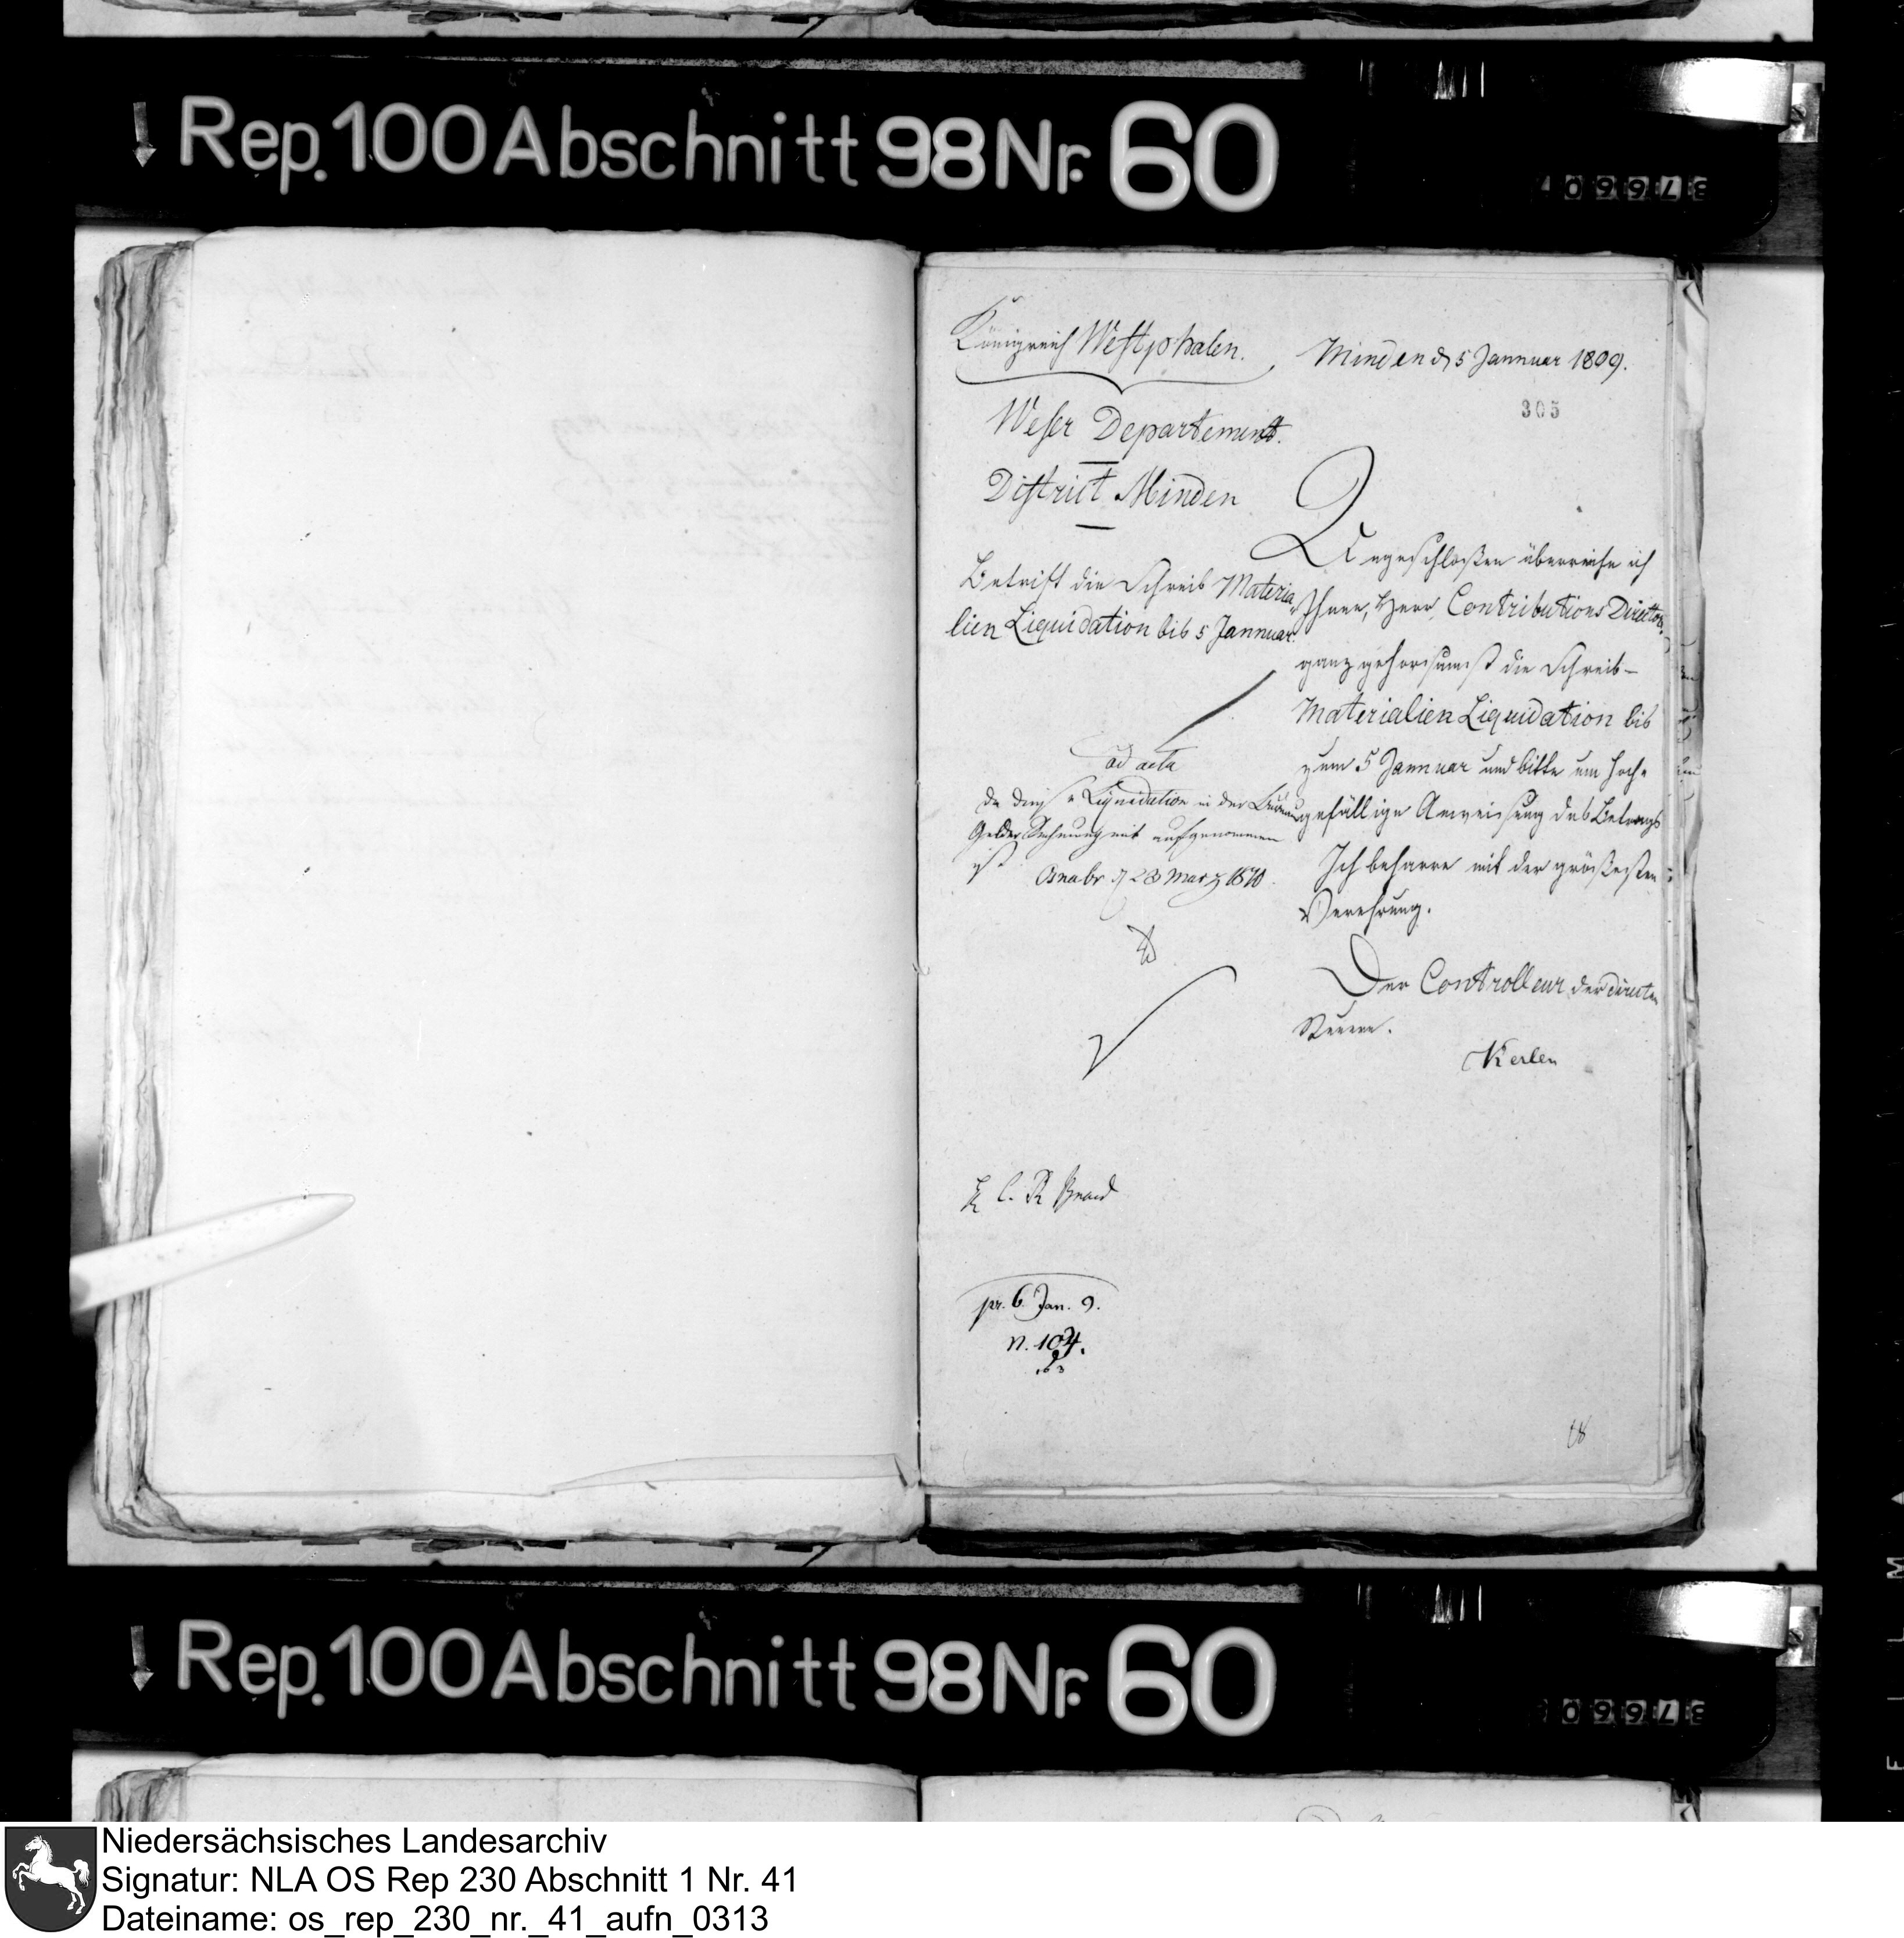 Rep. 100 Abschnitt 98 Nr. 60
37660
Königreich Westphalen.
Minden d 5 Jannuar 1809.
305
Weser Departement.
District Minden
Betrift die Schreib Materia
lien Liquidation bis 5 Jannuar.
Angeschloßen überreiche ich
Ihnen, Herr Contributions Director
ganz gehorsamst die Schreib-
Materialien Liquidation bis
zum 5 Jannuar und bitte um hoch-
gefällige Anweisung des Betrags
Ich beharre mit der größesten
Verehrung.
Der Controlleur der directen
Steuern.
Kerlen
ad acta
da diese Liquidation in der Büreau
Gelder Rechnung mit aufgenommen
ist
Osnabr. d 28 März 1810.
pr. 6. Jan. 9.
n. 104.
18
Rep. 100 Abschnitt 98 Nr. 60
37660
FILM
Niedersächsisches Landesarchiv
Signatur: NLA OS Rep 230 Abschnitt 1 Nr. 41
Dateiname: os_rep_230_nr._41_aufn_0313